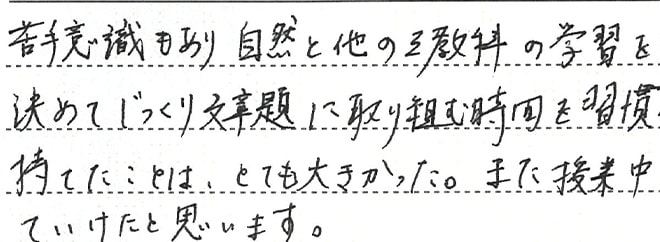 苦手意識もあり自然と他の3教科の学習を
決めてじっくり文章題に取り組む時間を習慣
持てたことは、とても大きかった。また授業中
ていけたと思います。